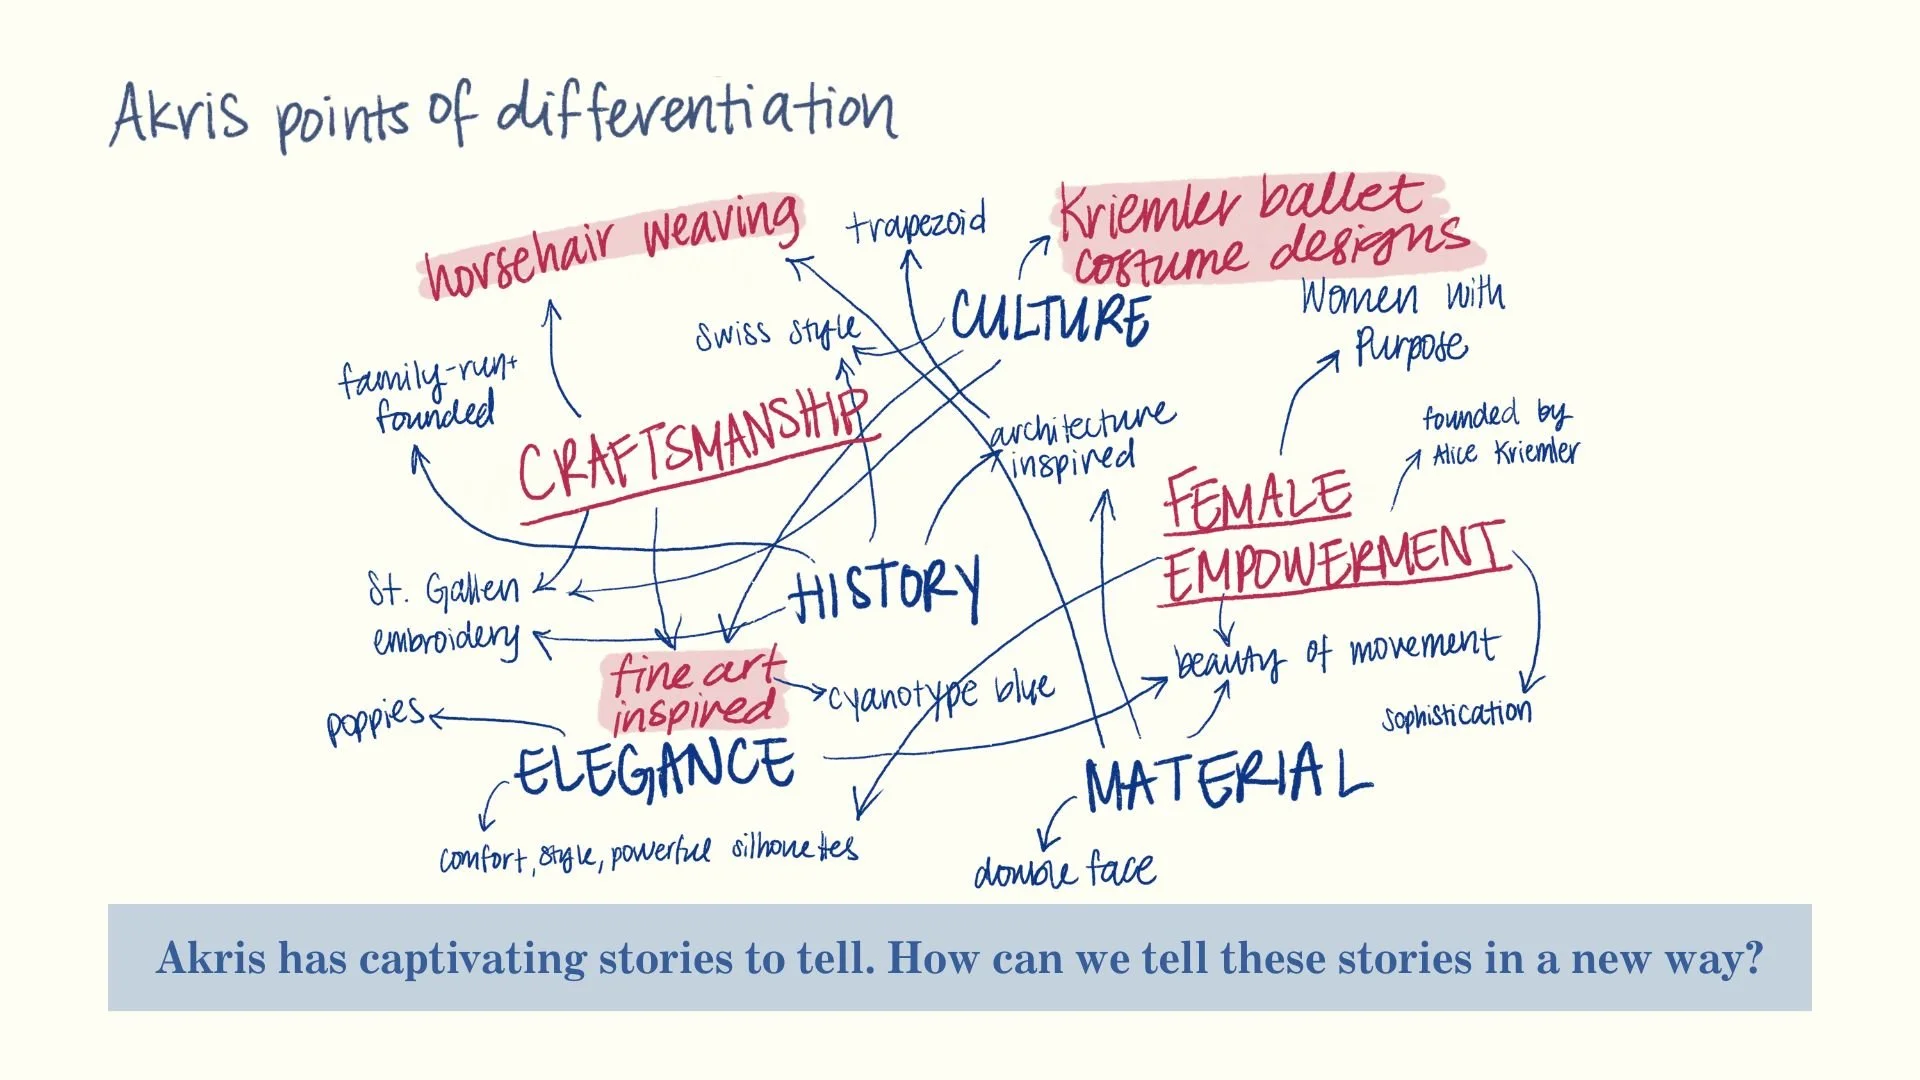 Akris points of differentiation
horsehair weaving
trapezoid
Kriemler ballet
costume designs
Swiss style
CULTURE
Women with
Purpose
family-run+
founded
CRAFTSMANSHIP
architecture
inspired
founded by
Alice Kriemler
FEMALE
EMPOWERMENT
St. Gallen
embroidery
HISTORY
fine art
inspired
cyanotype blue
beauty of movement
sophistication
poppies
ELEGANCE
MATERIAL
comfort, style, powerful silhouettes
double face
Akris has captivating stories to tell. How can we tell these stories in a new way?